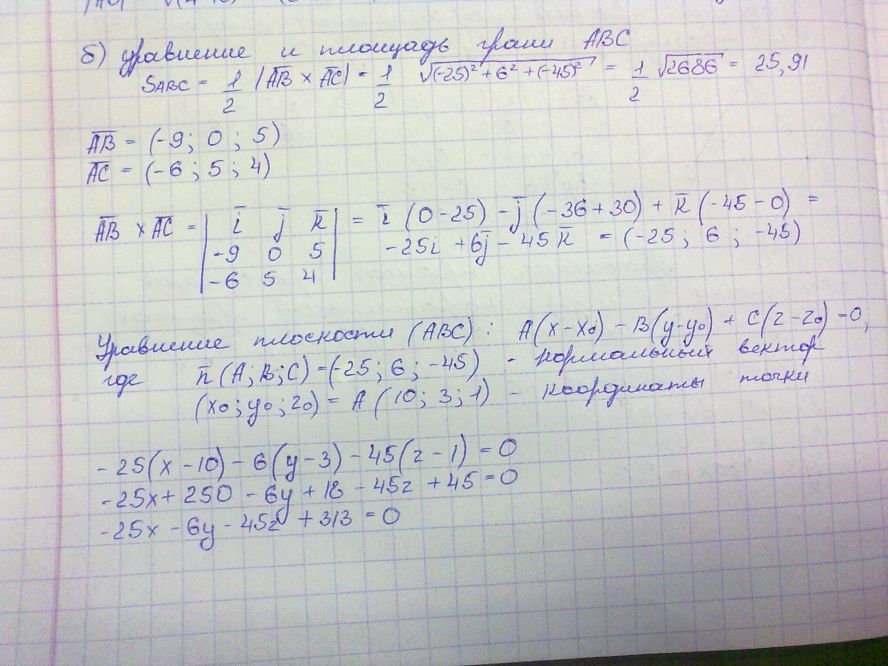 б) уравнение и площадь грани ABC
SABC = 1/2 |AB × AC| = 1/2 √(-25)² + 6² + (-45)² = 1/2 √2686 = 25,91
AB = (-9; 0; 5)
AC = (-6; 5; 4)
AB × AC = | i j k | = i (0-25) - j (-36+30) + k (-45-0) =
-9 0 5 -25i + 6j - 45k = (-25; 6; -45)
-6 5 4
Уравнение плоскости (ABC): A(x-x0) - B(y-y0) + C(z-z0) = 0,
где n (A; B; C) = (-25; 6; -45) - нормальный вектор
(x0; y0; z0) = A (10; 3; 1) - координаты точки
-25(x-10) - 6(y-3) - 45(z-1) = 0
-25x + 250 - 6y + 18 - 45z + 45 = 0
-25x - 6y - 45z + 313 = 0